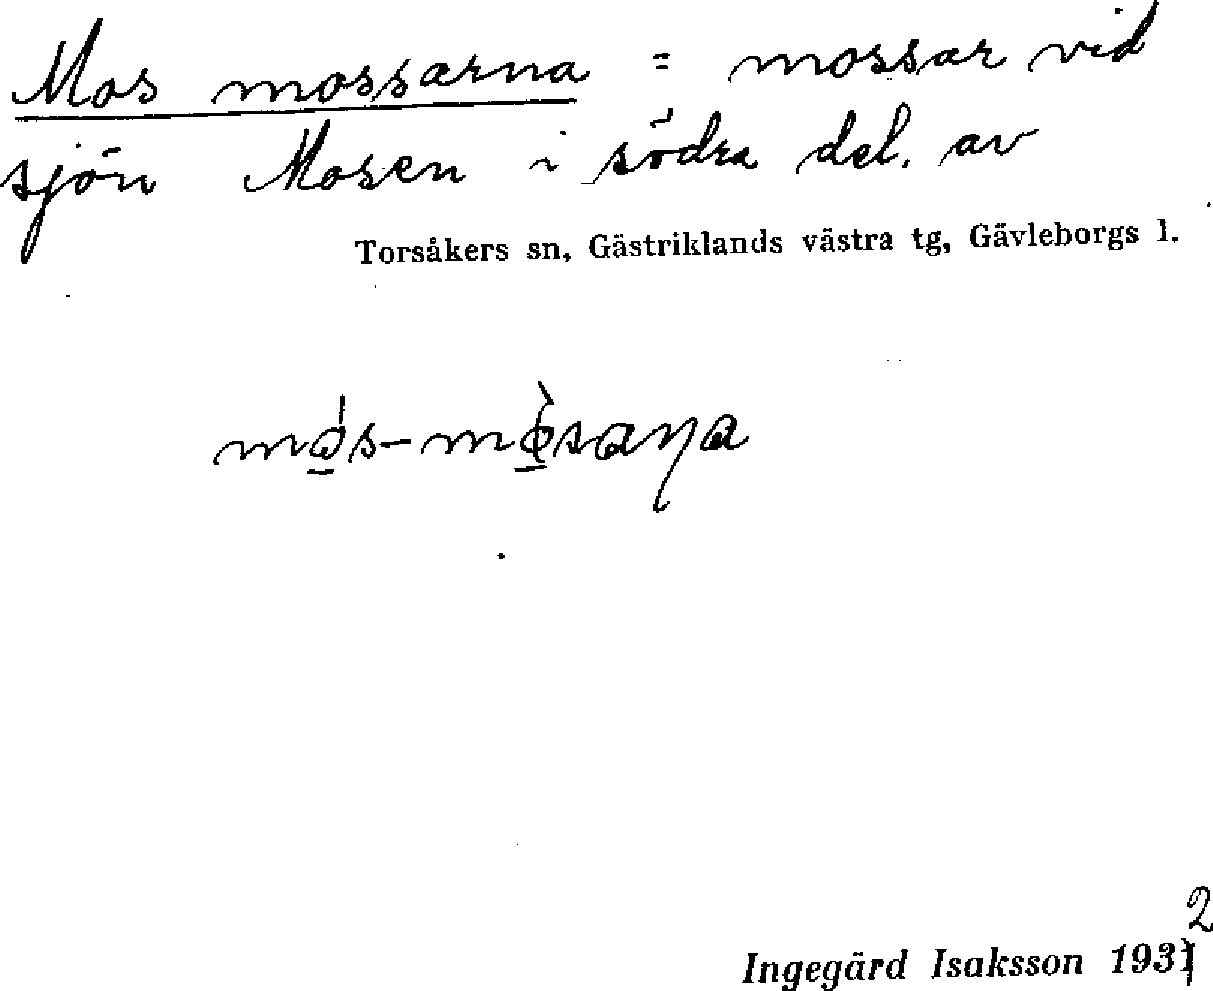 Mos mossarna = mossar vid
sjön Mosen i södra del. av
Torsåkers sn, Gästriklands västra tg, Gävleborgs l.
2
Ingegärd Isaksson 1931